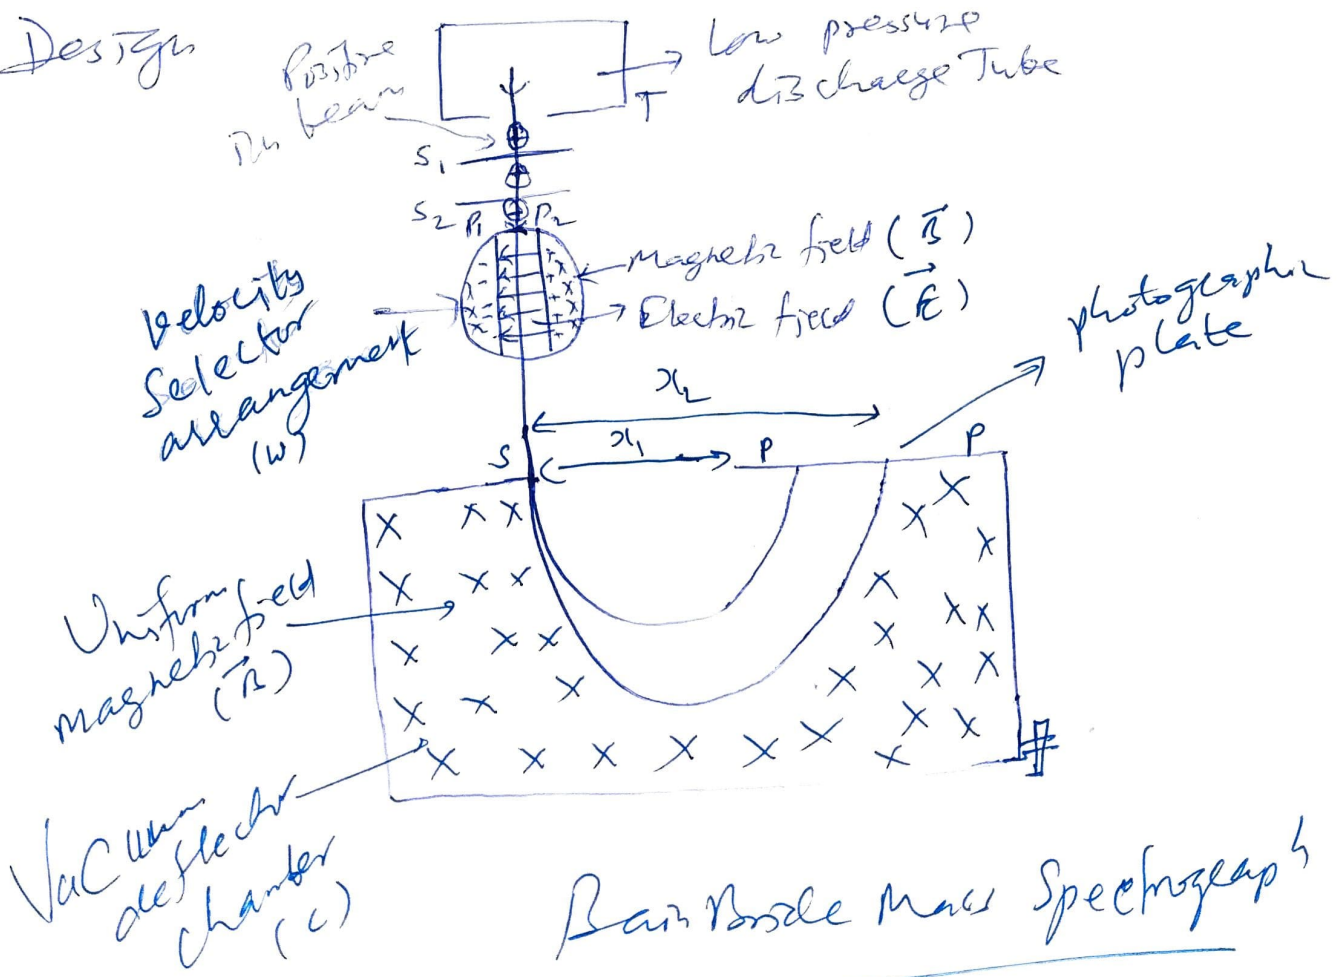 Design
Positive
Ion beam
Low pressure
discharge Tube
T
S1
S2
P1
P2
Magnetic field (B⃗)
Electric field (E⃗)
Velocity
Selector
arrangement
(W)
photographic
plate
x2
x1
S
C
P
P
Uniform
magnetic field
(B⃗)
Vacuum
deflector
chamber
(C)
BainBride Mass Spectrograph